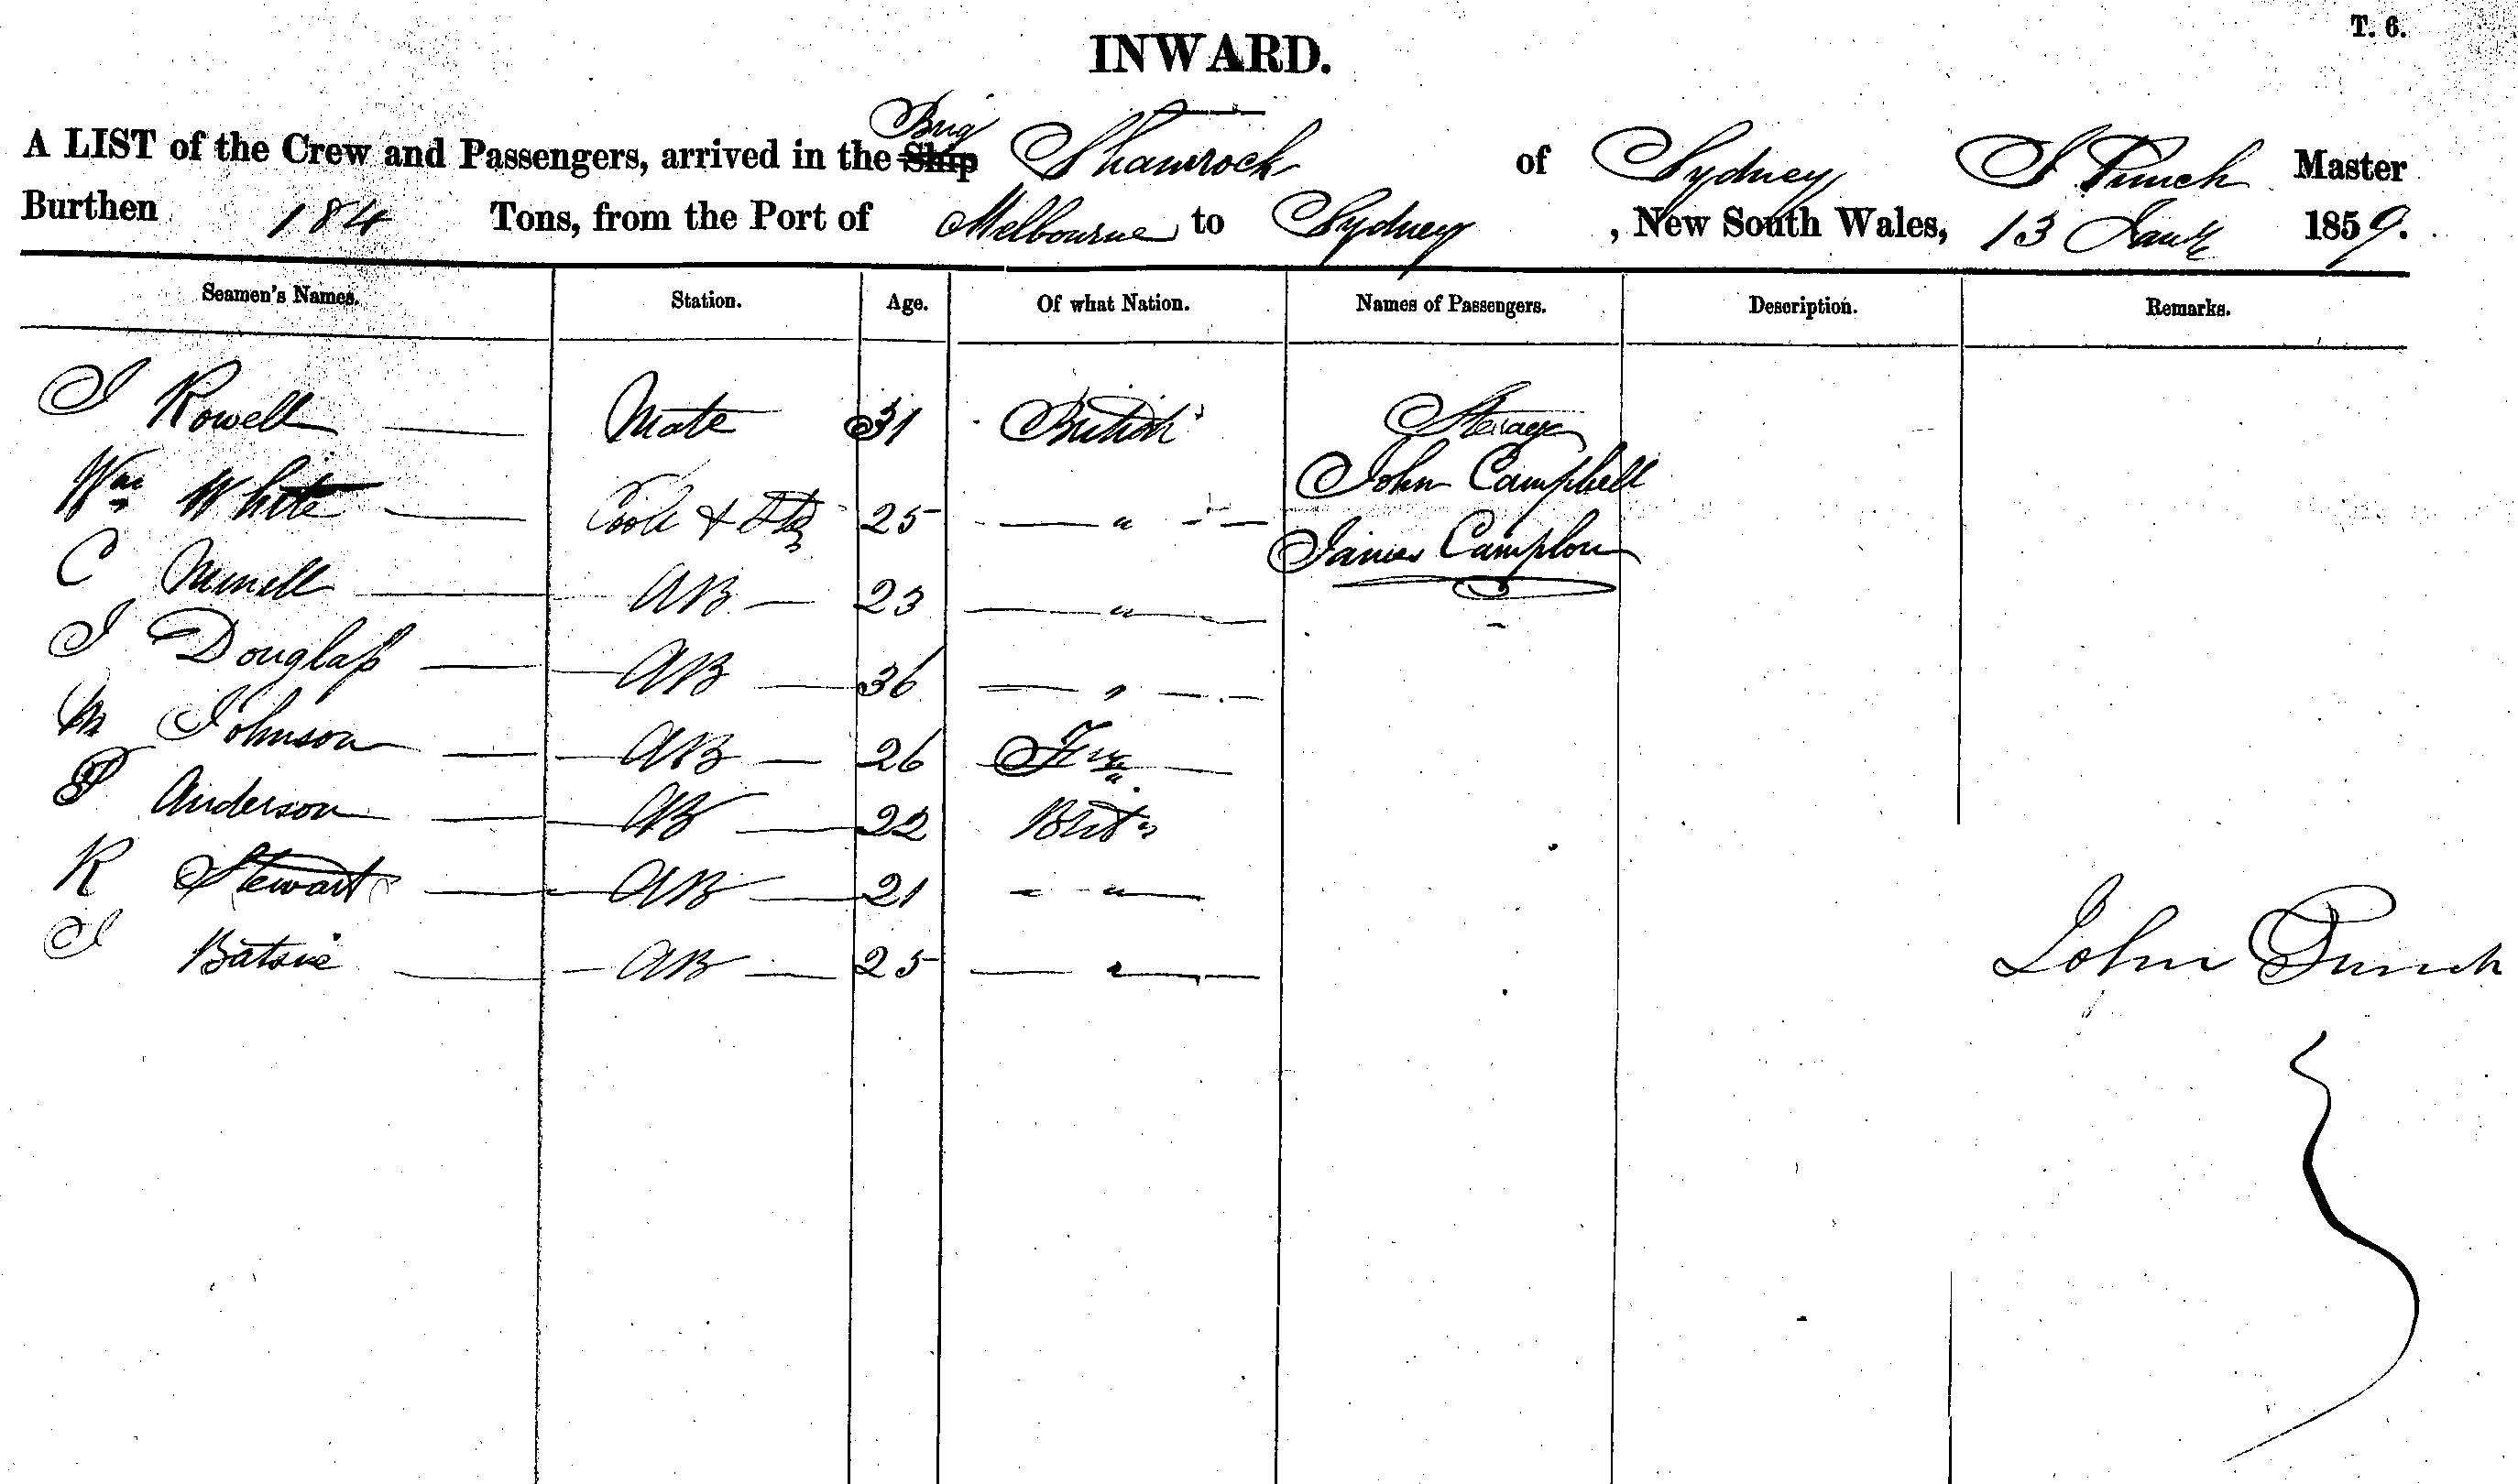 T. 6.
INWARD.
A LIST of the Crew and Passengers, arrived in the Ship Brig Shamrock of Sydney J Punch Master
Burthen 184 Tons, from the Port of Melbourne to Sydney, New South Wales, 13 Jany 1859.
Seamen's Names. Station. Age. Of what Nation. Names of Passengers. Description. Remarks.
J Rowell Mate 31 British Steerage
Wm White Cook & Std 25 " John Campbell
James Camplon
C AB 23 "
J Douglass AB 36 "
M Johnson AB 26
P Anderson AB 22 Brit
R Stewart AB 21 "
J AB 25 "
John Punch